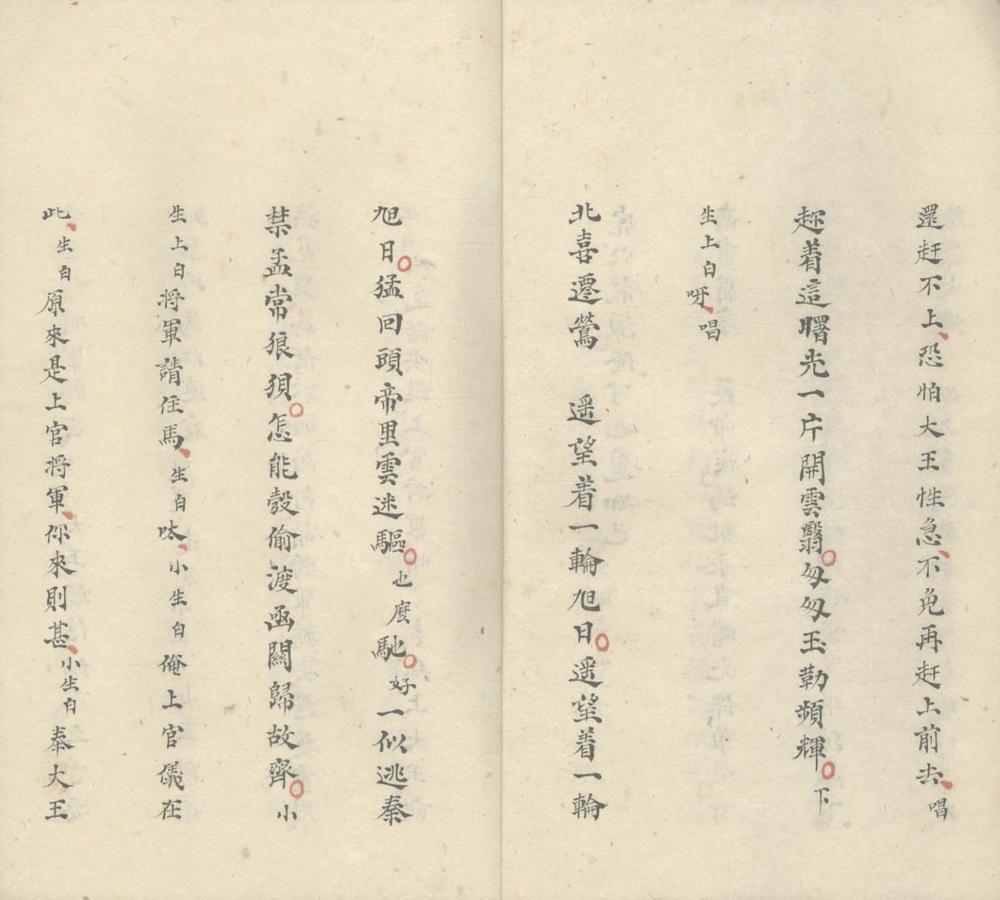 還赶不上、恐怕大王性急、不免再赶上前去、唱
趂着這曙光一片開雲翳○匆匆玉勒頻輝○下
生上白呀、唱
北喜遷鶯 遥望着一輪旭日○遥望着一輪
旭日○猛回頭帝里雲迷驅○也麽馳○好一似逃秦
禁孟常狼狽○怎能彀偷渡函關歸故齊○小
生上白將軍請住馬、生白呔、小生白俺上官儀在
此、生白原來是上官將軍、你來則甚、小生白奉大王